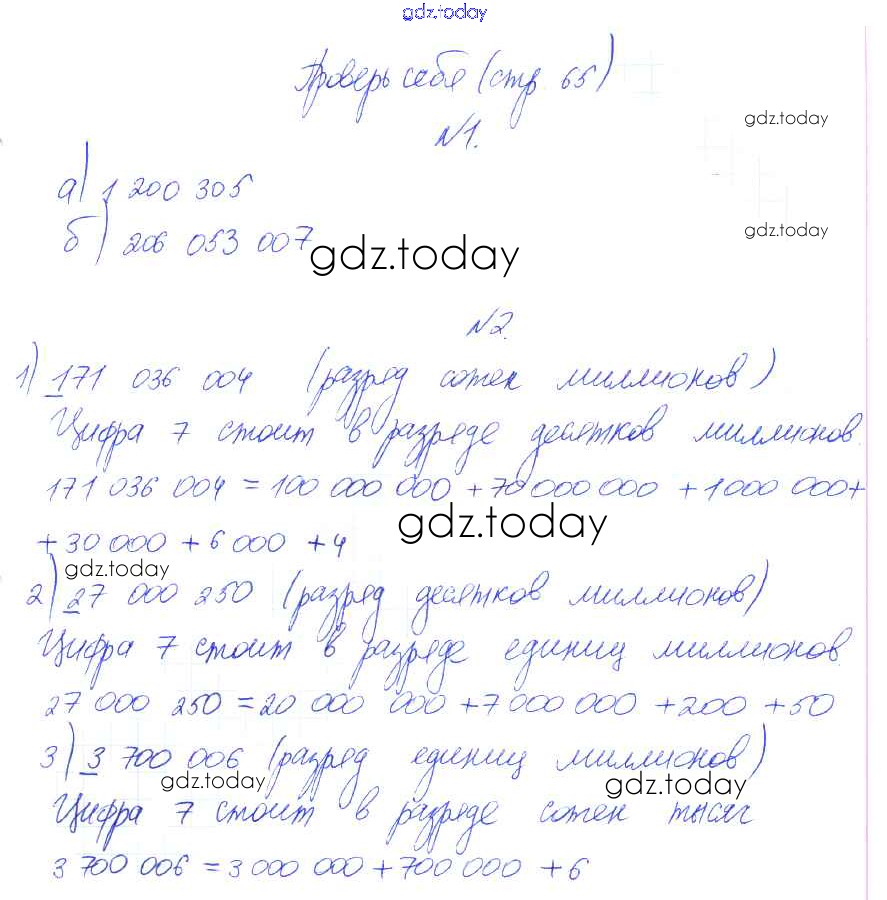 gdz.today
Проверь себя (стр. 65)
gdz.today
№1.
а) 1 200 305
gdz.today
б) 206 053 007
gdz.today
№2.
1) 171 036 004 (разряд сотен миллионов)
Цифра 7 стоит в разряде десятков миллионов.
171 036 004 = 100 000 000 + 70 000 000 + 1 000 000 +
gdz.today
+ 30 000 + 6 000 + 4
gdz.today
2) 27 000 250 (разряд десятков миллионов)
Цифра 7 стоит в разряде единиц миллионов.
27 000 250 = 20 000 000 + 7 000 000 + 200 + 50
3) 3 700 006 (разряд единиц миллионов)
gdz.today gdz.today
Цифра 7 стоит в разряде сотен тысяч
3 700 006 = 3 000 000 + 700 000 + 6